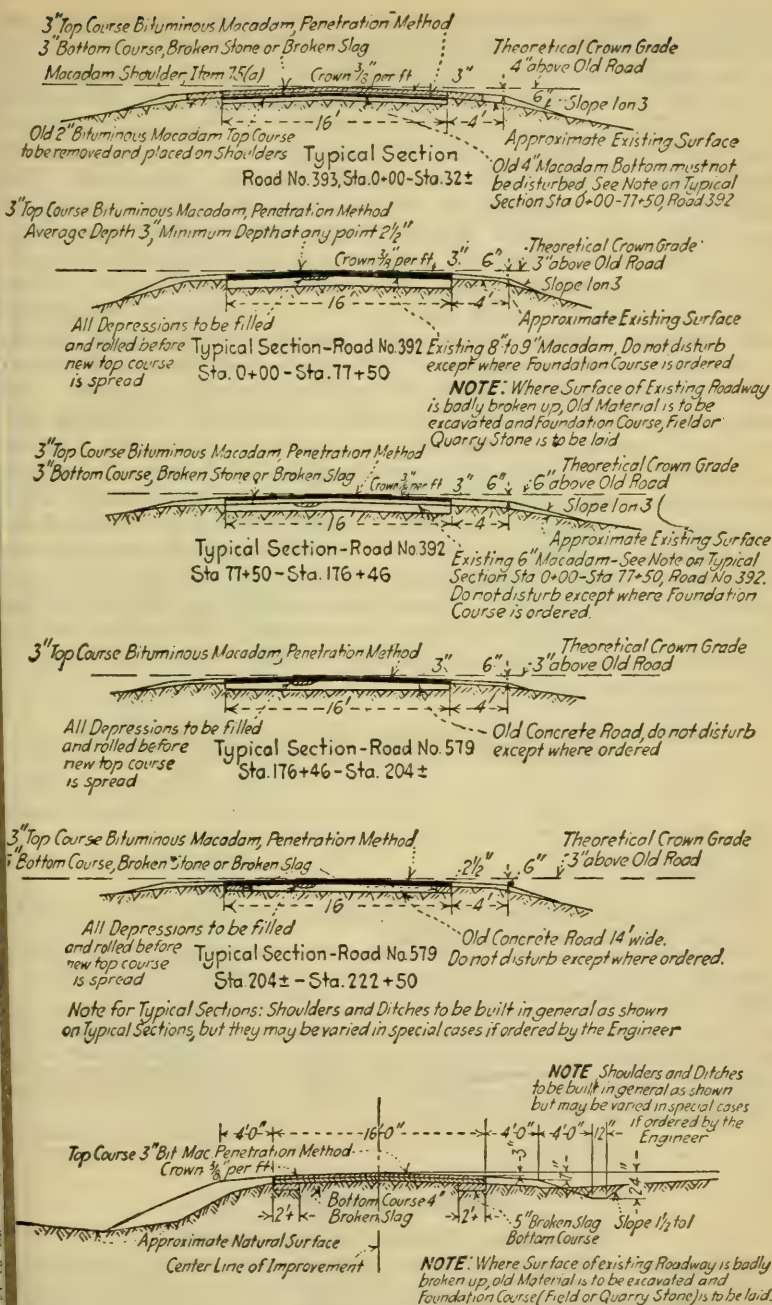 3" Top Course Bituminous Macadam, Penetration Method
3" Bottom Course, Broken Stone or Broken Slag
Macadam Shoulder, Item 75(a)
Crown 3/8" per ft
3"
Theoretical Crown Grade
4" above Old Road
6"
Slope 1 on 3
16'
4'
Old 2" Bituminous Macadam Top Course
to be removed and placed on Shoulders
Approximate Existing Surface
Typical Section
Road No. 393, Sta. 0+00-Sta. 32±
Old 4" Macadam Bottom must not
be disturbed. See Note on Typical
Section Sta 0+00-77+50, Road 392
3" Top Course Bituminous Macadam, Penetration Method
Average Depth 3", Minimum Depth at any point 2½"
Crown 3/8" per ft.
3"
6"
Theoretical Crown Grade
3" above Old Road
Slope 1 on 3
16
4'
Approximate Existing Surface
All Depressions to be filled
and rolled before
new top course
is spread
Typical Section-Road No. 392
Sta. 0+00 - Sta. 77+50
Existing 8" to 9" Macadam, Do not disturb
except where Foundation Course is ordered
NOTE: Where Surface of Existing Roadway
is badly broken up, Old Material is to be
excavated and Foundation Course, Field or
Quarry Stone is to be laid
3" Top Course Bituminous Macadam, Penetration Method
3" Bottom Course, Broken Stone or Broken Slag
Crown per ft
3"
6"
Theoretical Crown Grade
6" above Old Road
Slope 1 on 3
16'
4'
Approximate Existing Surface
Typical Section-Road No. 392
Sta 77+50-Sta. 176+46
Existing 6" Macadam-See Note on Typical
Section Sta 0+00-Sta 77+50, Road No 392.
Do not disturb except where Foundation
Course is ordered.
3" Top Course Bituminous Macadam, Penetration Method
3"
6"
Theoretical Crown Grade
3" above Old Road
16'
4'
All Depressions to be filled
and rolled before
new top course
is spread
Typical Section-Road No. 579
Sta. 176+46-Sta. 204±
Old Concrete Road, do not disturb
except where ordered
3" Top Course Bituminous Macadam, Penetration Method
Bottom Course, Broken Stone or Broken Slag
2½"
6"
Theoretical Crown Grade
3" above Old Road
16'
4'
All Depressions to be filled
and rolled before
new top course
is spread
Typical Section-Road No. 579
Sta. 204± - Sta. 222+50
Old Concrete Road 14' wide.
Do not disturb except where ordered.
Note for Typical Sections: Shoulders and Ditches to be built in general as shown
on Typical Sections, but they may be varied in special cases if ordered by the Engineer
NOTE Shoulders and Ditches
to be built in general as shown
but may be varied in special cases
if ordered by the
Engineer
4'-0"
16'-0"
4'-0"
4'-0"
12"
Top Course 3" Bit Mac. Penetration Method
Crown 3/8" per ft
3"
7"
24"
2'±
Bottom Course 4"
Broken Slag
2'±
5" Broken Slag
Bottom Course
Slope 1½ to 1
Approximate Natural Surface
Center Line of Improvement
NOTE: Where Surface of existing Roadway is badly
broken up, old Material is to be excavated and
Foundation Course (Field or Quarry Stone) is to be laid.